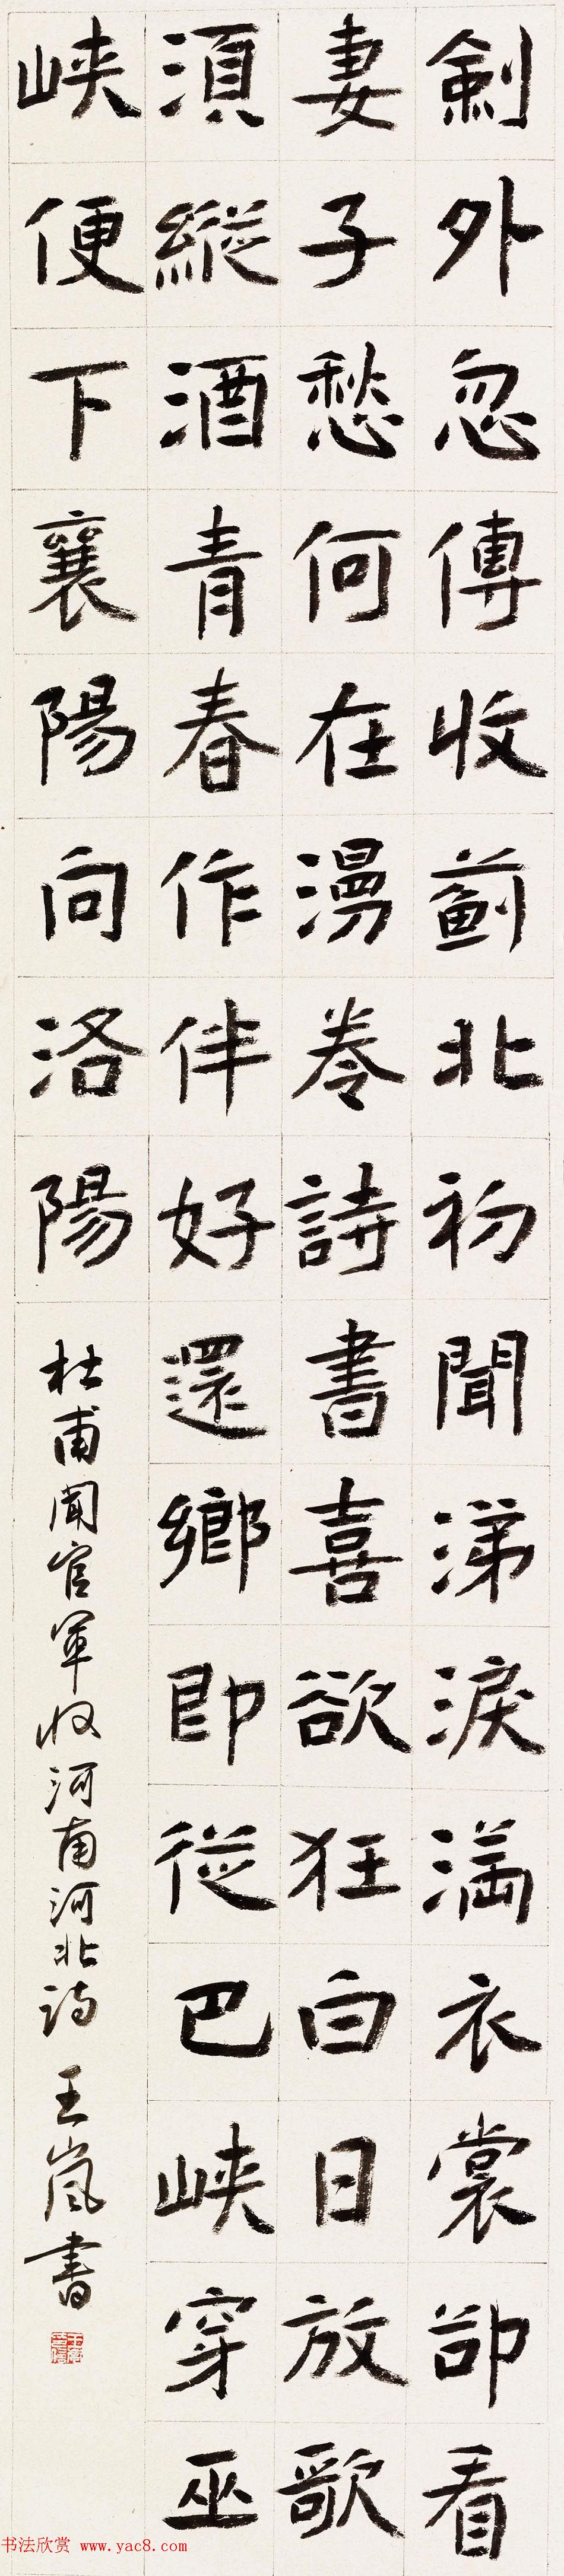 劍外忽傳收薊北初聞涕淚滿衣裳卻看
妻子愁何在漫卷詩書喜欲狂白日放歌
須縱酒青春作伴好還鄉即從巴峽穿巫
峽便下襄陽向洛陽
杜甫聞官軍收河南河北詩 王嵐書
书法欣赏 www.yac8.com